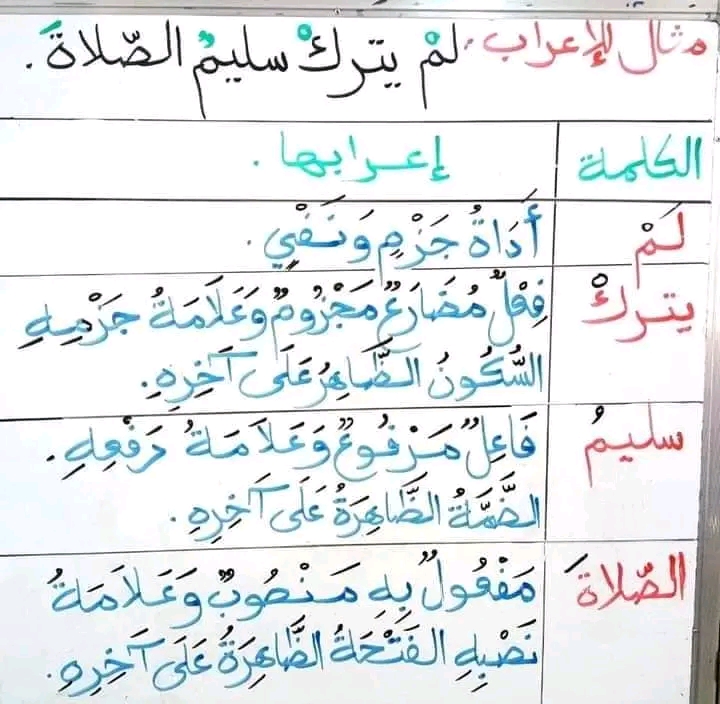 مثال للإعراب: لمْ يتركْ سليمٌ الصّلاةَ.
الكلمة إعرابها.
لَمْ أَدَاةُ جَزْمٍ وَنَفْيٍ.
يتركْ فِعْلٌ مُضَارَعٌ مَجْزُومٌ وَعَلَامَةُ جَزْمِهِ
السُّكُونُ الظَّاهِرُ عَلَى آخِرِهِ.
سليمُ فَاعِلٌ مَرْفُوعٌ وَعَلَامَةُ رَفْعِهِ.
الضَّمَّةُ الظَّاهِرَةُ عَلَى آخِرِهِ.
الصّلاةَ مَفْعُولٌ بِهِ مَنْصُوبٌ وَعَلَامَةُ
نَصْبِهِ الفَتْحَةُ الظَّاهِرَةُ عَلَى آخِرِهِ.